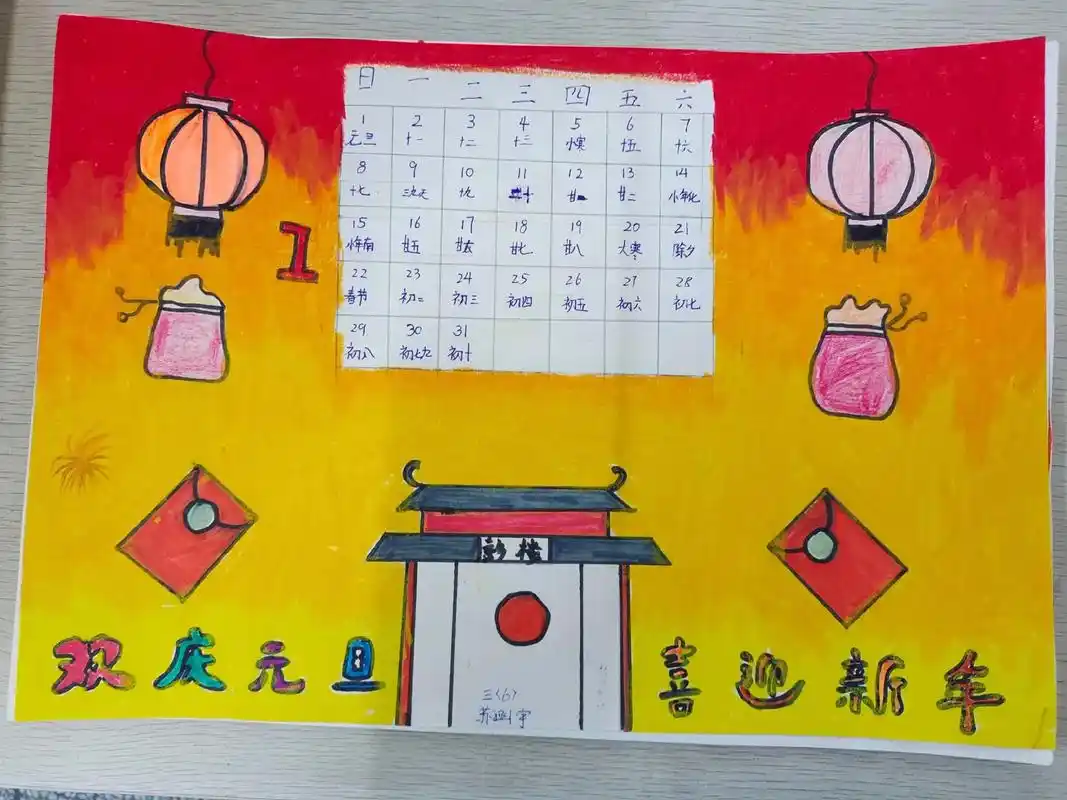 日 一 二 三 四 五 六
1 2 3 4 5 6 7
元旦 十一 十二 十三 小寒 十五 十六
1
8 9 10 11 12 13 14
十七 三九天 十九 二十 廿一 廿二 小年北
15 16 17 18 19 20 21
小年南 廿五 廿六 廿七 廿八 大寒 除夕
22 23 24 25 26 27 28
春节 初二 初三 初四 初五 初六 初七
29 30 31
初八 初九 初十
彭楼
欢庆元旦
喜迎新年
三〈6〉